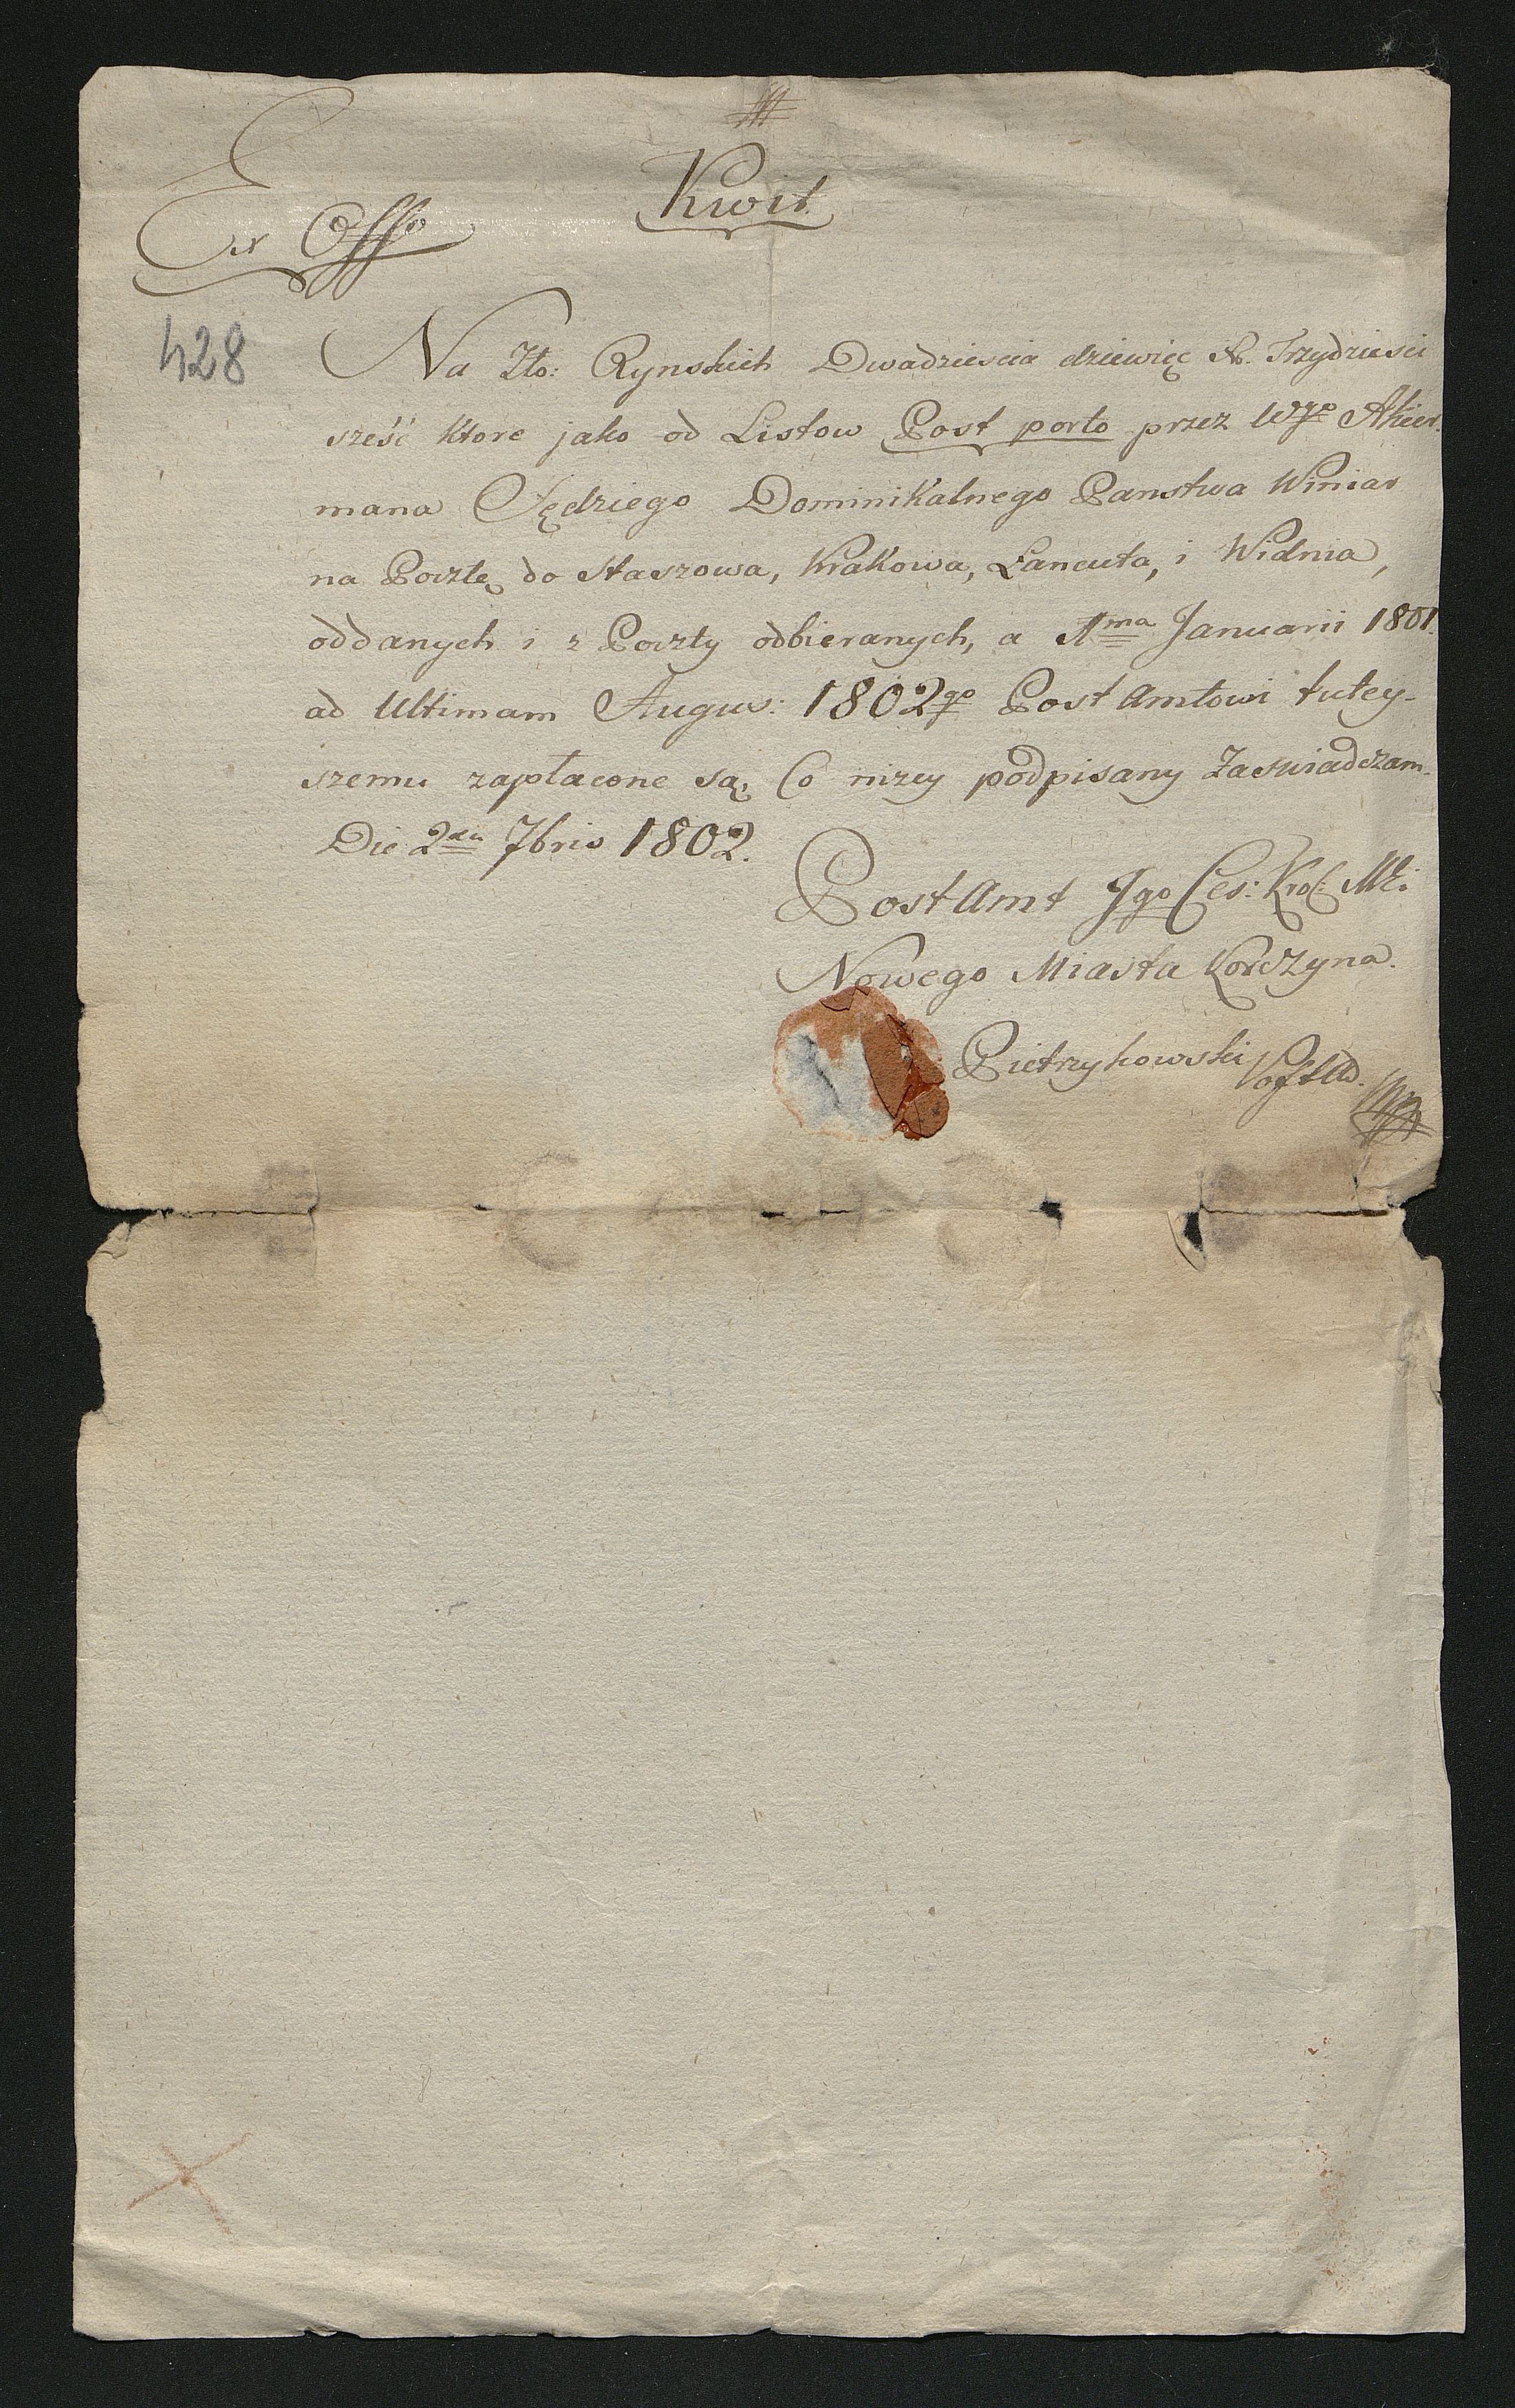 Kwit.
Ex Offo
428
Na Zło: Rynskich Dwadziescia dziewięc X. Trzydziesci
sześć ktore jako od Listow Post porto przez Wgo Akier-
mana Sędziego Dominikalnego Panstwa Winiar
na Pocztę do Staszowa, Krakowa, Łancuta, i Widnia,
oddanych i z Poczty odbieranych, a 1ma Januarii 1801.
ad Ultimam Augus: 1802go Post Amtowi tutey-
szemu zapłacone są, Co nizey podpisany Zaswiadczam.
Die 2da 7bris 1802.
Post Amt Jgo Ces: Krol: Mći
Nowego Miasta Korczyna.
Pietrzykowski